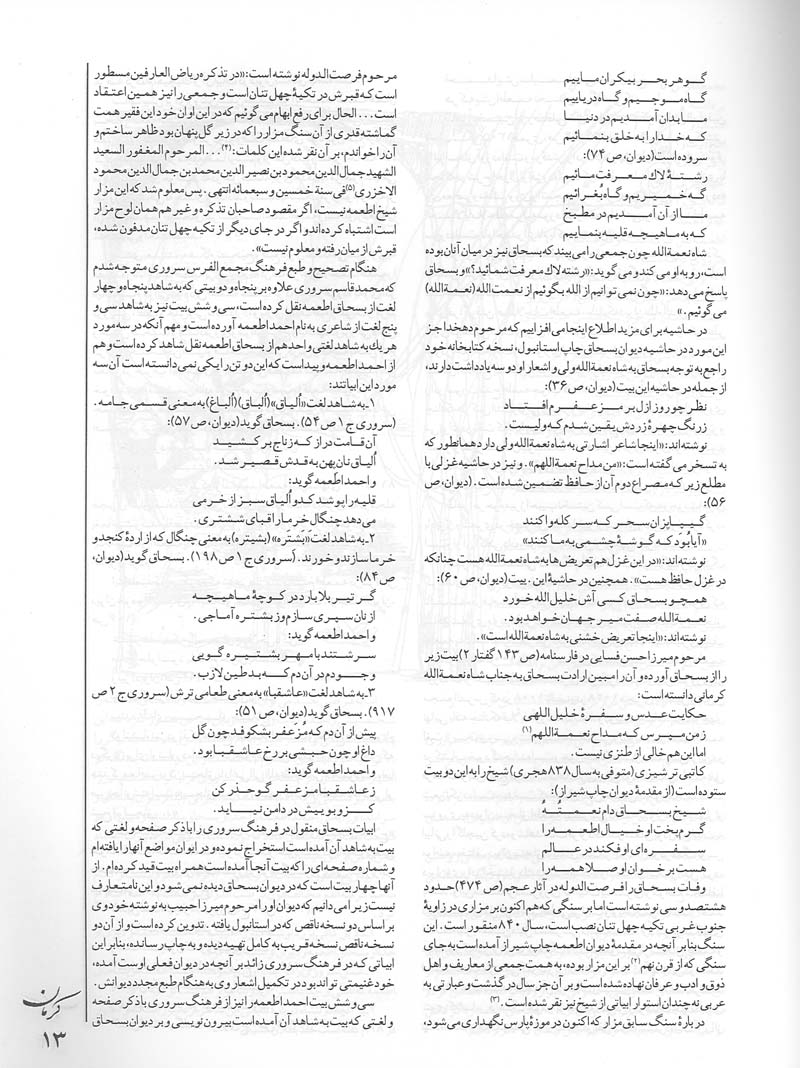 گوهر بحر بیکران ماییم
گاه موجیم و گاه دریاییم
ما بدان آمدیم در دنیا
که خدا را به خلق بنمائیم
سروده است (دیوان، ص ۷۴):
رشتهٔ لاک معرفت مائیم
گه خمیریم و گاه بُغرائیم
ما از آن آمدیم در مطبخ
که به ماهیچه قلیه بنماییم
شاه نعمة‌الله چون جمعی را می‌بیند که بسحاق نیز در میان آنان بوده
است، رو به او می‌کند و می‌گوید: «رشته لاک معرفت شمائید؟» و بسحاق
پاسخ می‌دهد: «چون نمی‌توانیم از الله بگوئیم از نعمت‌الله (نعمةالله)
می‌گوئیم.»
در حاشیه برای مزید اطلاع اینجا می‌افزاییم که مرحوم دهخدا جز
این مورد در حاشیه دیوان بسحاق چاپ استانبول، نسخه کتابخانه خود
راجع به توجه بسحاق به شاه نعمةالله ولی و اشعار او دو سه یادداشت دارند،
از جمله در حاشیه این بیت (دیوان، ص ۳۶):
نظر چو روز ازل بر مزعفرم افتاد
ز رنگ چهرهٔ زردش یقین شدم که ولیست.
نوشته‌اند: «اینجا شاعر اشارتی به شاه نعمةالله ولی دارد همانطور که
به تسخر می‌گفته است: «من مداح نعمة‌اللهم». و نیز در حاشیه غزلی با
مطلع زیر که مصراع دوم آن از حافظ تضمین شده است. (دیوان، ص
۵۶):
گیپاپزان سحر که سر کله وا کنند
«آیا بُوَد که گوشهٔ چشمی به ما کنند»
نوشته‌اند: «در این غزل هم تعریض‌ها به شاه نعمةالله هست چنانکه
در غزل حافظ هست». همچنین در حاشیهٔ این. بیت (دیوان، ص ۶۰):
همچو بسحاق کسی آش خلیل الله خورد
نعمةالله صفت میر جهان خواهد بود.
نوشته‌اند: «اینجا تعریض خشنی به شاه نعمةالله است».
مرحوم میرزا حسن فسایی در فارسنامه (ص ۱۴۳ گفتار ۲) بیت زیر
را از بسحاق آورده و آن را مبین ارادت بسحاق به جناب شاه نعمةالله
کرمانی دانسته است:
حکایت عدس و سفرهٔ خلیل اللهی
ز من مپرس که مداح نعمة‌اللهم(۱)
اما این هم خالی از طنزی نیست.
کاتبی ترشیزی (متوفی به سال ۸۳۸ هجری) شیخ را به این دو بیت
ستوده است (از مقدمهٔ دیوان چاپ شیراز):
شیخ بسحاق دام نعمتُهُ
گرم پخت او خیال اطعمه را
سفره‌ای او فکند در عالم
هست بر خوان او صلا همه را
وفات بسحاق را فرصت‌الدوله در آثار عجم (ص ۴۷۴) حدود
هشتصد و سی نوشته است اما بر سنگی که هم‌اکنون بر مزاری در زاویهٔ
جنوب غربی تکیه چهل تنان نصب است، سال ۸۴۰ منقور است. این
سنگ بنابر آنچه در مقدمهٔ دیوان اطعمه چاپ شیراز آمده است به جای
سنگی که از قرن نهم(۲) بر این مزار بوده، به همت جمعی از معاریف و اهل
ذوق و ادب و عرفان نهاده شده است و بر آن جز سال در گذشت و عبارتی به
عربی نه چندان استوار ابیاتی از شیخ نیز نقر شده است.(۳)
در بارهٔ سنگ سابق مزار که اکنون در موزهٔ پارس نگهداری می‌شود،
مرحوم فرصت‌الدوله نوشته است: «در تذکره ریاض العارفین مسطور
است که قبرش در تکیهٔ چهل تنان است و جمعی را نیز همین اعتقاد
است... الحال برای رفع ابهام می‌گوئیم که در این اوان خود این فقیر همت
گماشته قدری از آن سنگ مزار را که در زیر گل پنهان بود ظاهر ساختم و
آن را خواندم، بر آن نقر شده این کلمات: (۴)... المرحوم المغفور السعید
الشهید جمال‌الدین محمود بن نصیر الدین محمد بن جمال‌الدین محمود
الاخزری(۵) فی سنة خمسین و سبعمائه انتهی. پس معلوم شد که این مزار
شیخ اطعمه نیست، اگر مقصود صاحبان تذکره و غیرهم همان لوح مزار
است اشتباه کرده‌اند و اگر در جای دیگر از تکیه چهل تنان مدفون شده،
قبرش از میان رفته و معلوم نیست».
هنگام تصحیح و طبع فرهنگ مجمع الفرس سروری متوجه شدم
که محمد قاسم سروری علاوه بر پنجاه و دو بیتی که به شاهد پنجاه و چهار
لغت از بسحاق اطعمه نقل کرده است، سی و شش بیت نیز به شاهد سی و
پنج لغت از شاعری به نام احمد اطعمه آورده است و مهم آنکه در سه مورد
هر یک به شاهد لغتی واحد هم از بسحاق اطعمه نقل شاهد کرده است و هم
از احمد اطعمه و پیداست که این دو تن را یکی نمی‌دانسته است آن سه
مورد این ابیاتند:
۱ـ به شاهد لغت «اُلیاق» (اُلباق) (اُلباغ) به معنی قسمی جامه.
(سروری ج ۱ ص ۵۴). بسحاق گوید (دیوان، ص ۵۷):
آن قامت دراز که زناج بر کشید
اُلیاق نان پهن به قدش قصیر شد.
و احمد اطعمه گوید:
قلیه را پوشد کدو اُلیاق سبز از خرمی
می‌دهد چنگال خرما را قبای ششتری.
۲ـ به شاهد لغت «بَشتَره» (بشیتره) به معنی چنگال که از اردهٔ کنجد و
خرما سازند و خورند. (سروری ج ۱ ص ۱۹۸). بسحاق گوید (دیوان،
ص ۸۴):
گر تیر بلا بارد در کوچهٔ ماهیچه
از نان سپری سازم وز بشتره آماجی.
و احمد اطعمه گوید:
سرشتند با مهر بشتیره گویی
وجودم در آن دم که بد طین لازب.
۳ـ به شاهد لغت «عاشقبا» به معنی طعامی ترش (سروری ج ۲ ص
۹۱۷). بسحاق گوید (دیوان، ص ۵۱):
پیش از آن دم که مُزَعفر بشکوفد چون گل
داغ او چون حبشی بر رخ عاشقبا بود.
و احمد اطعمه گوید:
ز عاشقبا مزعفر گو حذر کن
کزو بویش در دامن نیاید.
ابیات بسحاق منقول در فرهنگ سروری را با ذکر صفحه و لغتی که
بیت به شاهد آن آمده است استخراج نموده و در ایوان مواضع آنها را یافته‌ام
و شماره صفحه‌ای را که بیت آنجا آمده است همراه بیت قید کرده‌ام. از
آنها چهار بیت است که در دیوان بسحاق دیده نمی‌شود و این نامتعارف
نیست زیرا می‌دانیم که دیوان او را مرحوم میرزا حبیب به نوشته خود وی
بر اساس دو نسخه ناقص که در استانبول یافته. تدوین کرده است و از آن دو
نسخه ناقص نسخه قریب به کامل تهیه دیده و به چاپ رسانده، بنابر این
ابیاتی که در فرهنگ سروری زائد بر آنچه در دیوان فعلی اوست آمده،
خود غنیمتی تواند بود در تکمیل اشعار وی به هنگام طبع مجدد دیوانش.
سی و شش بیت احمد اطعمه را نیز از فرهنگ سروری با ذکر صفحه
و لغتی که بیت به شاهد آن آمده است بیرون نویسی و بر دیوان بسحاق
کرمان
۱۳